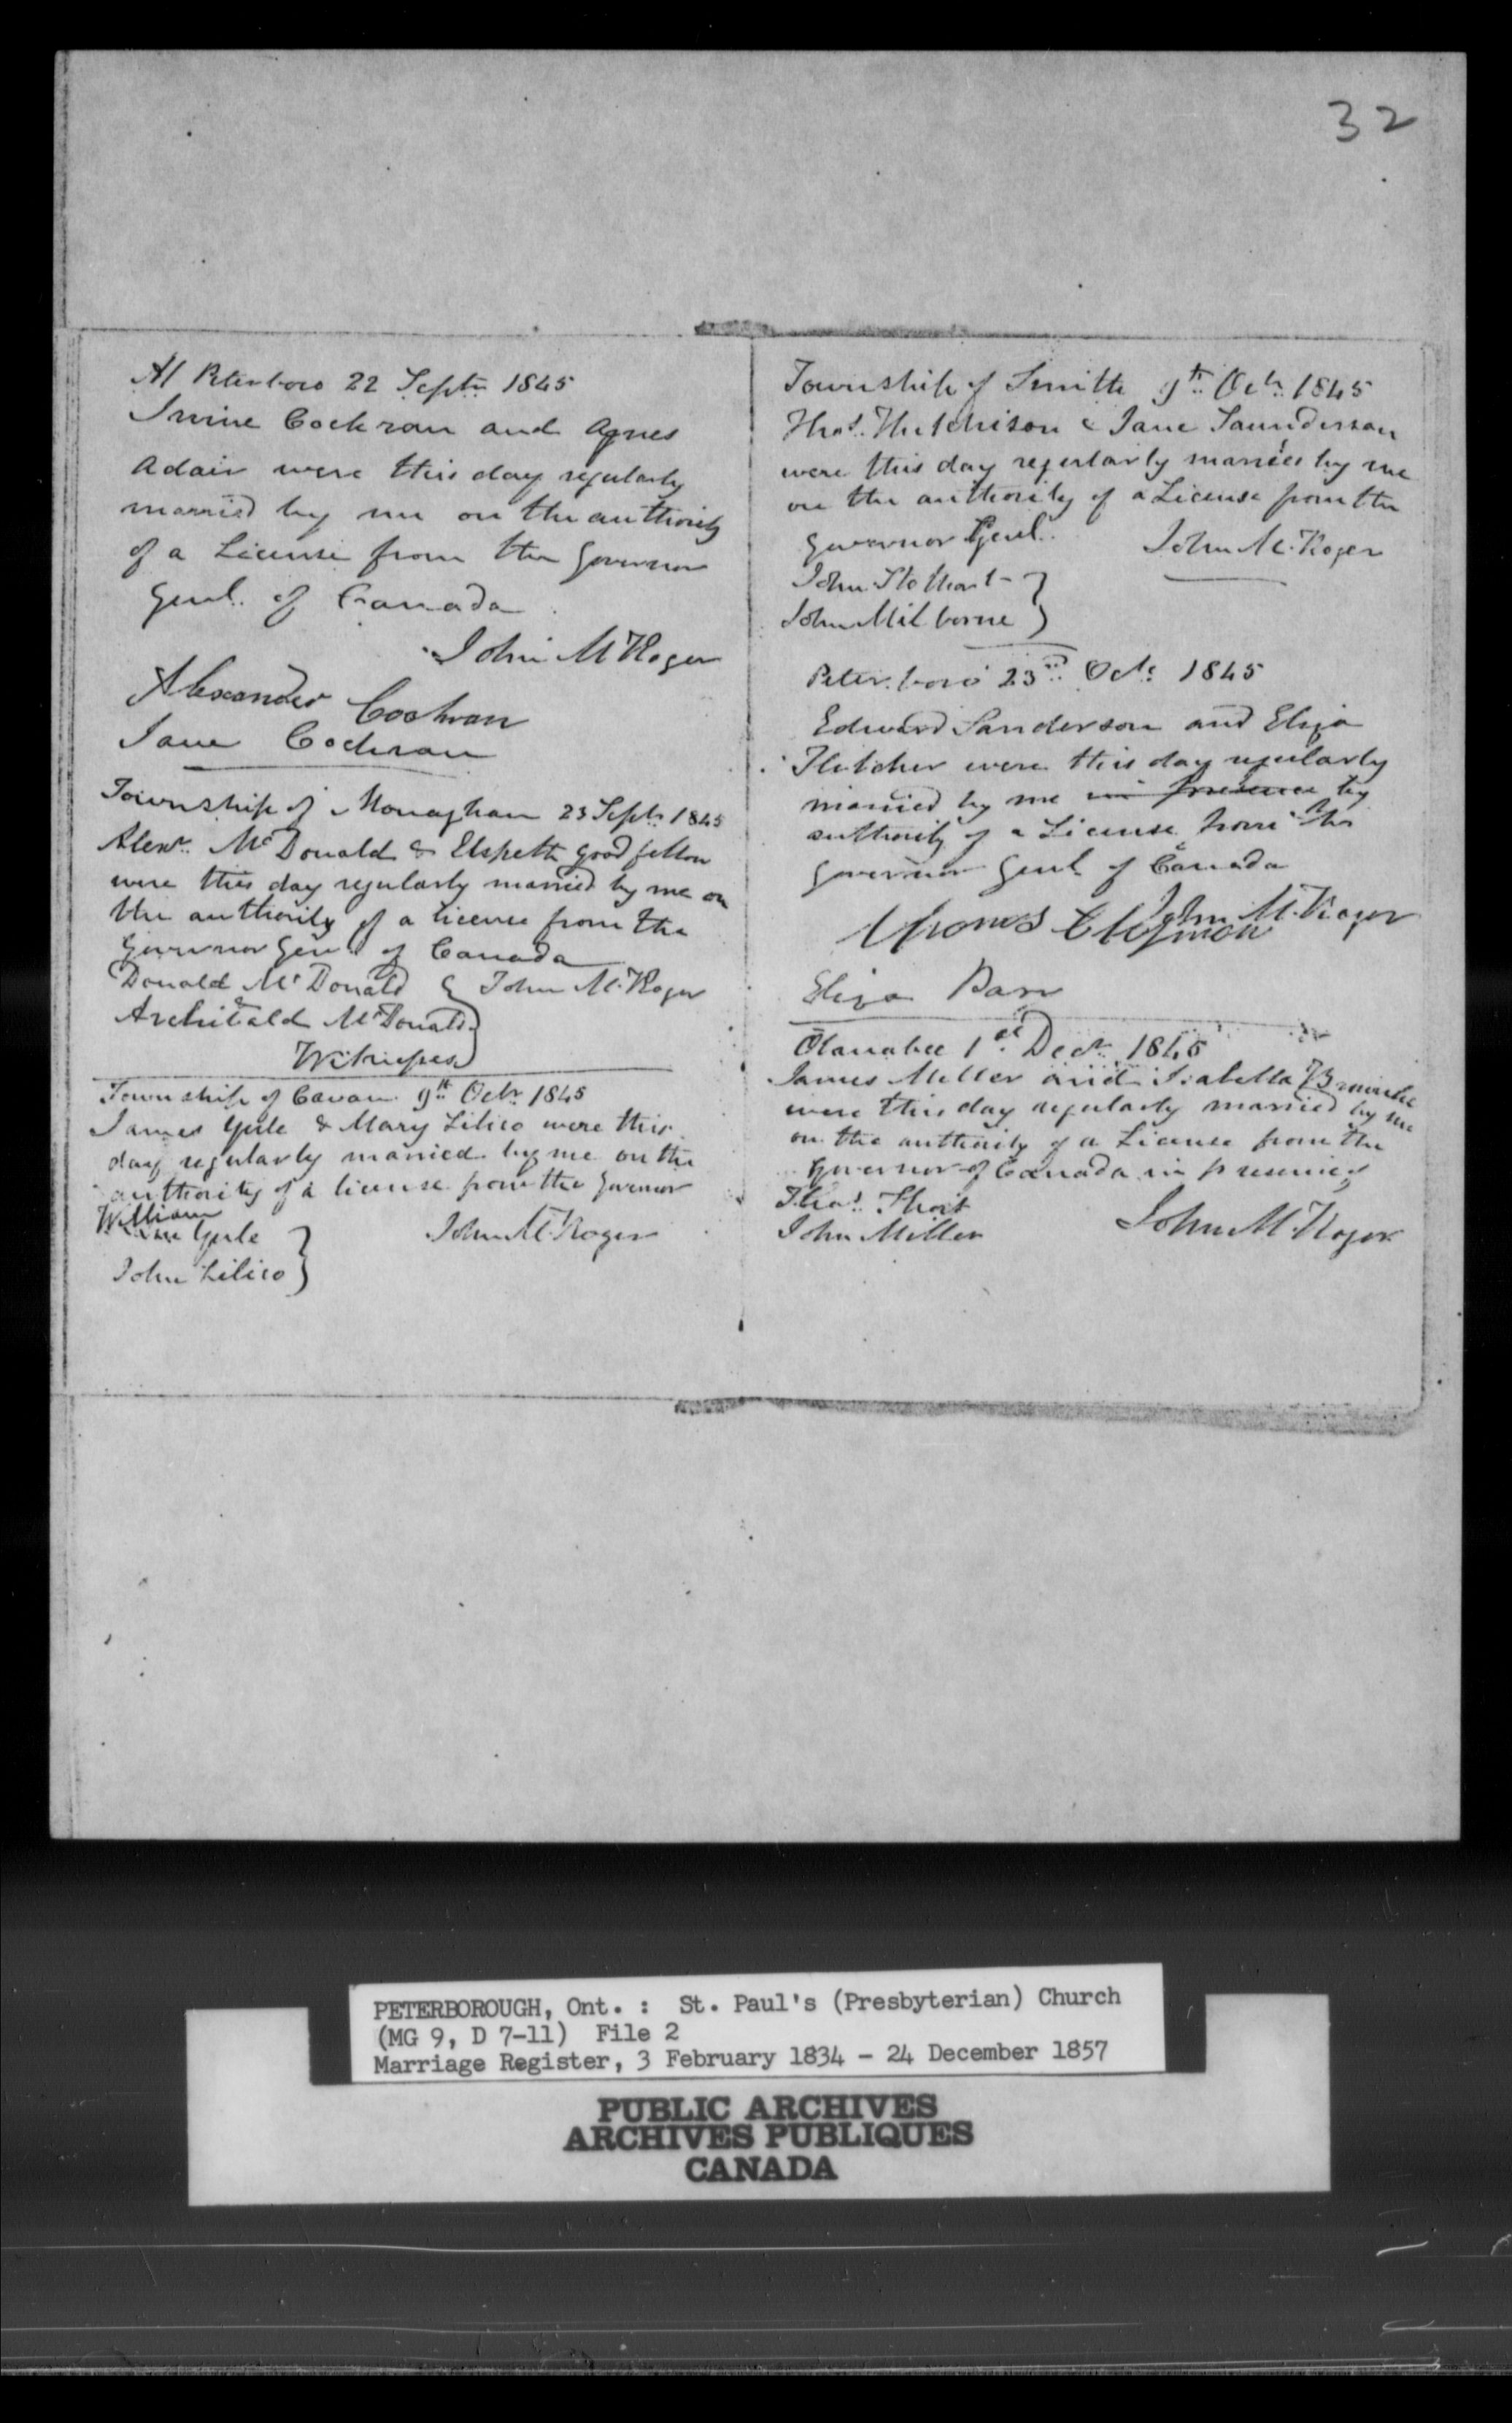 32
At Peterboro 22 Septr 1845
Irvine Cockran and Agnes
Adair were this day regularly
married by me on the authority
of a License from the Governor
Genl. of Canada
John M Roger
Alexander Cochran
Jane Cochran
Township of Monaghan 23 Septr 1845
Alexr. McDonald & Elspeth Goodfellow
were this day regularly married by me on
the authority of a licence from the
Governor Genl of Canada
Donald McDonald & John M. Roger
Archibald McDonald
Witnesses
Township of Cavan 9th Octr 1845
James Yule & Mary Lilico were this
day regularly married by me on the
authority of a license from the Governor
William
Yule
John M. Roger
John Lilico
Township of Smith 9th Octr. 1845
Thos. Hutchison & Jane Saunderson
were this day regularly married by me
on the authority of a License from the
Governor Genl.
John M. Roger
John Stothart
John Milborne
Peterboro 23rd Octr 1845
Edward Sanderson and Eliza
Fletcher were this day regularly
married by me in presence by
authority of a License from the
Governor Genl of Canada
John M. Roger
Thomas
Eliza Barr
Otanabee 1st Decr 1845
James Miller and Isabella
were this day regularly married by me
on the authority of a License from the
Governor of Canada in presence of
Thos. Short
John Miller
John M. Roger
PETERBOROUGH, Ont. : St. Paul's (Presbyterian) Church
(MG 9, D 7-11) File 2
Marriage Register, 3 February 1834 - 24 December 1857
PUBLIC ARCHIVES
ARCHIVES PUBLIQUES
CANADA